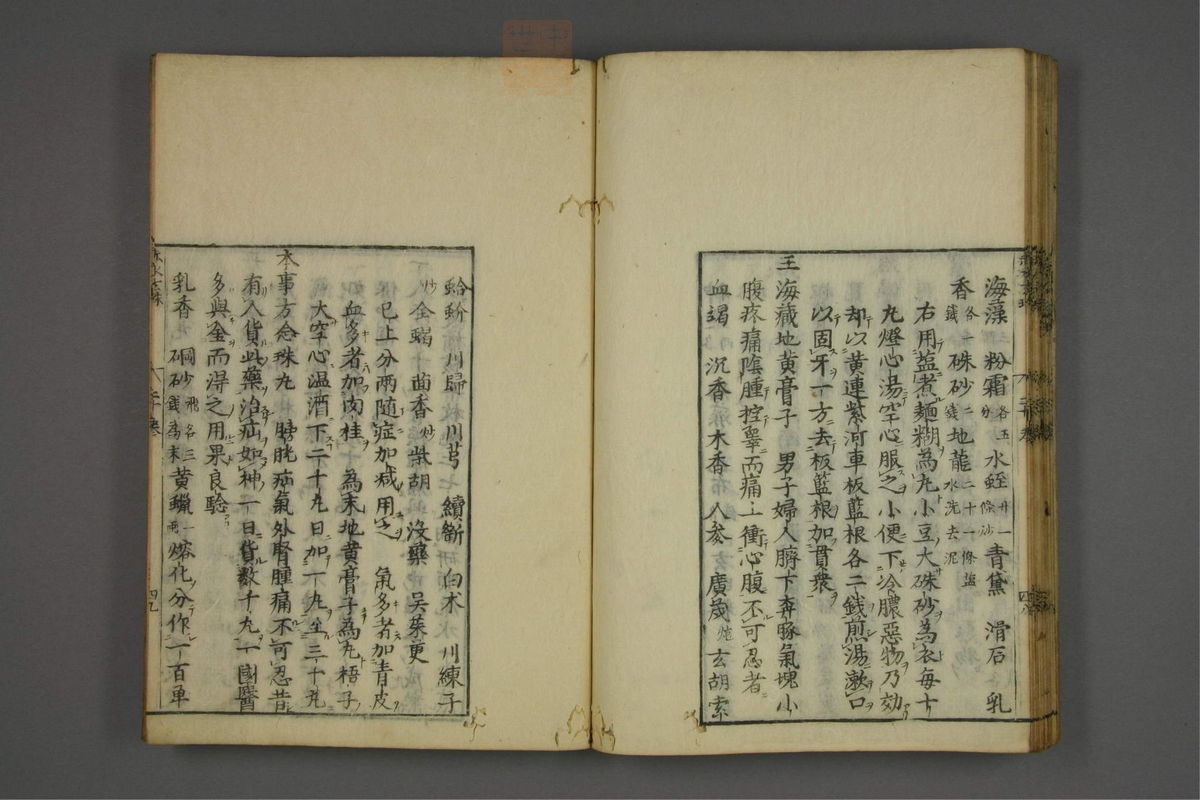 海藻 粉霜各五分 水蛭廿一條沙 青黛 滑石 乳
香各一錢 硃砂二錢 地龍二十一條塩水洗去泥
右用塩煮麺糊為丸小豆大硃砂為衣毎十
丸燈心湯空心服之小便下冷膿惡物乃効
却以黄連紫河車板藍根各二錢煎湯漱口
以固牙一方去板籃根加貫衆
王海藏地黄膏子 男子婦人臍下奔豚氣塊小
腹疼痛陰腫控睾而痛上衝心腹不可忍者
血竭 沉香 木香 人參 廣茂炮 玄胡索
蛤蚧 川歸 川芎 續斷 白术 川練子
炒 全蝎 茴香炒 柴胡 沒藥 吳茱更
已上分兩随症加减用之 氣多者加青皮
血多者加肉桂 為末地黄膏子為丸梧子
大空心温酒下二十丸日加一丸至三十丸
本事方念珠丸 膀胱疝氣外腎腫痛不可忍昔
有人貨此藥治疝如神一日貨数千丸一國醫
多與金而得之用果良驗
乳香 硇砂飛各三錢為末 黄蠟一兩 熔化分作一百單